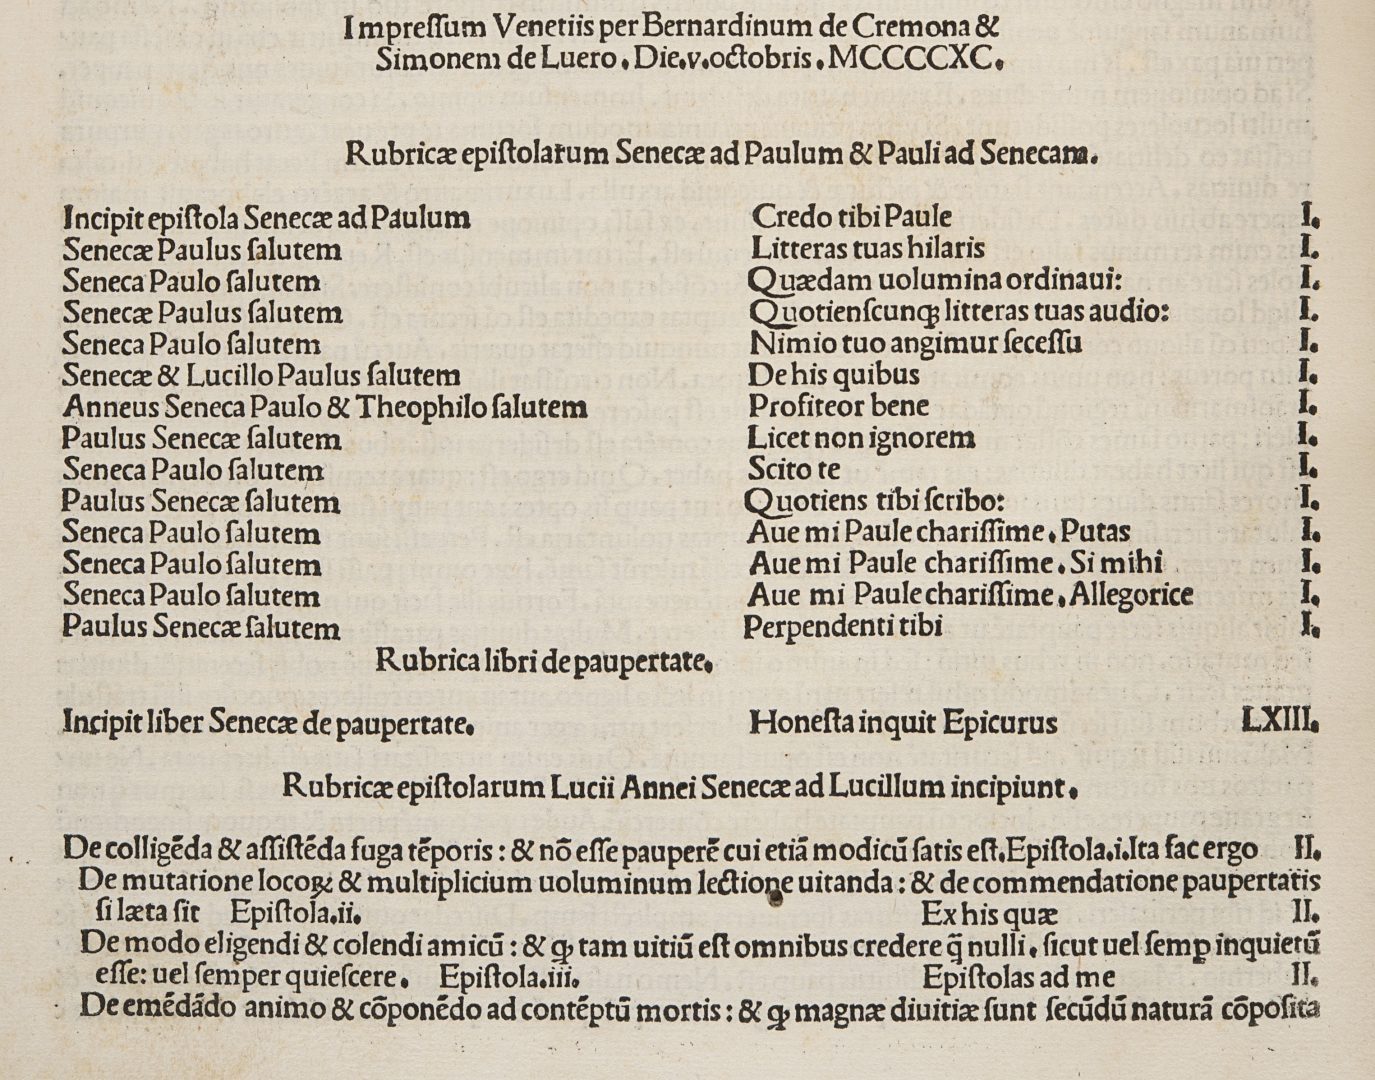 Impreſſum Venetiis per Bernardinum de Cremona &
Simonem de Luero. Die.v.octobris. MCCCCXC.
Rubricæ epiſtolarum Senecæ ad Paulum & Pauli ad Senecam.
Incipit epiſtola Senecæ ad Paulum Credo tibi Paule I.
Senecæ Paulus ſalutem Litteras tuas hilaris I.
Seneca Paulo ſalutem Quædam uolumina ordinaui: I.
Senecæ Paulus ſalutem Quotienſcunꝗ litteras tuas audio: I.
Seneca Paulo ſalutem Nimio tuo angimur ſeceſſu I.
Senecæ & Lucillo Paulus ſalutem De his quibus I.
Anneus Seneca Paulo & Theophilo ſalutem Profiteor bene I.
Paulus Senecæ ſalutem Licet non ignorem I.
Seneca Paulo ſalutem Scito te I.
Paulus Senecæ ſalutem Quotiens tibi ſcribo: I.
Seneca Paulo ſalutem Aue mi Paule chariſſime. Putas I.
Seneca Paulo ſalutem Aue mi Paule chariſſime. Si mihi I.
Seneca Paulo ſalutem Aue mi Paule chariſſime. Allegorice I.
Paulus Senecæ ſalutem Perpendenti tibi I.
Rubrica libri de paupertate.
Incipit liber Senecæ de paupertate. Honeſta inquit Epicurus LXIII.
Rubricæ epiſtolarum Lucii Annei Senecæ ad Lucillum incipiunt.
De colligēda & aſſiſtēda fuga tēporis: & nō eſſe pauperē cui etiā modicū ſatis eſt. Epiſtola.i. Ita fac ergo II.
De mutatione locoꝝ & multiplicium uoluminum lectione uitanda: & de commendatione paupertatis
ſi læta ſit Epiſtola.ii. Ex his quæ II.
De modo eligendi & colendi amicū: & ꝙ tam uitiū eſt omnibus credere q̄ nulli. ſicut uel ſemꝑ inquietū
eſſe: uel ſemper quieſcere. Epiſtola.iii. Epiſtolas ad me II.
De emēdādo animo & cōponēdo ad contēptū mortis: & ꝙ magnæ diuitiæ ſunt ſecūdū naturā cōpoſita